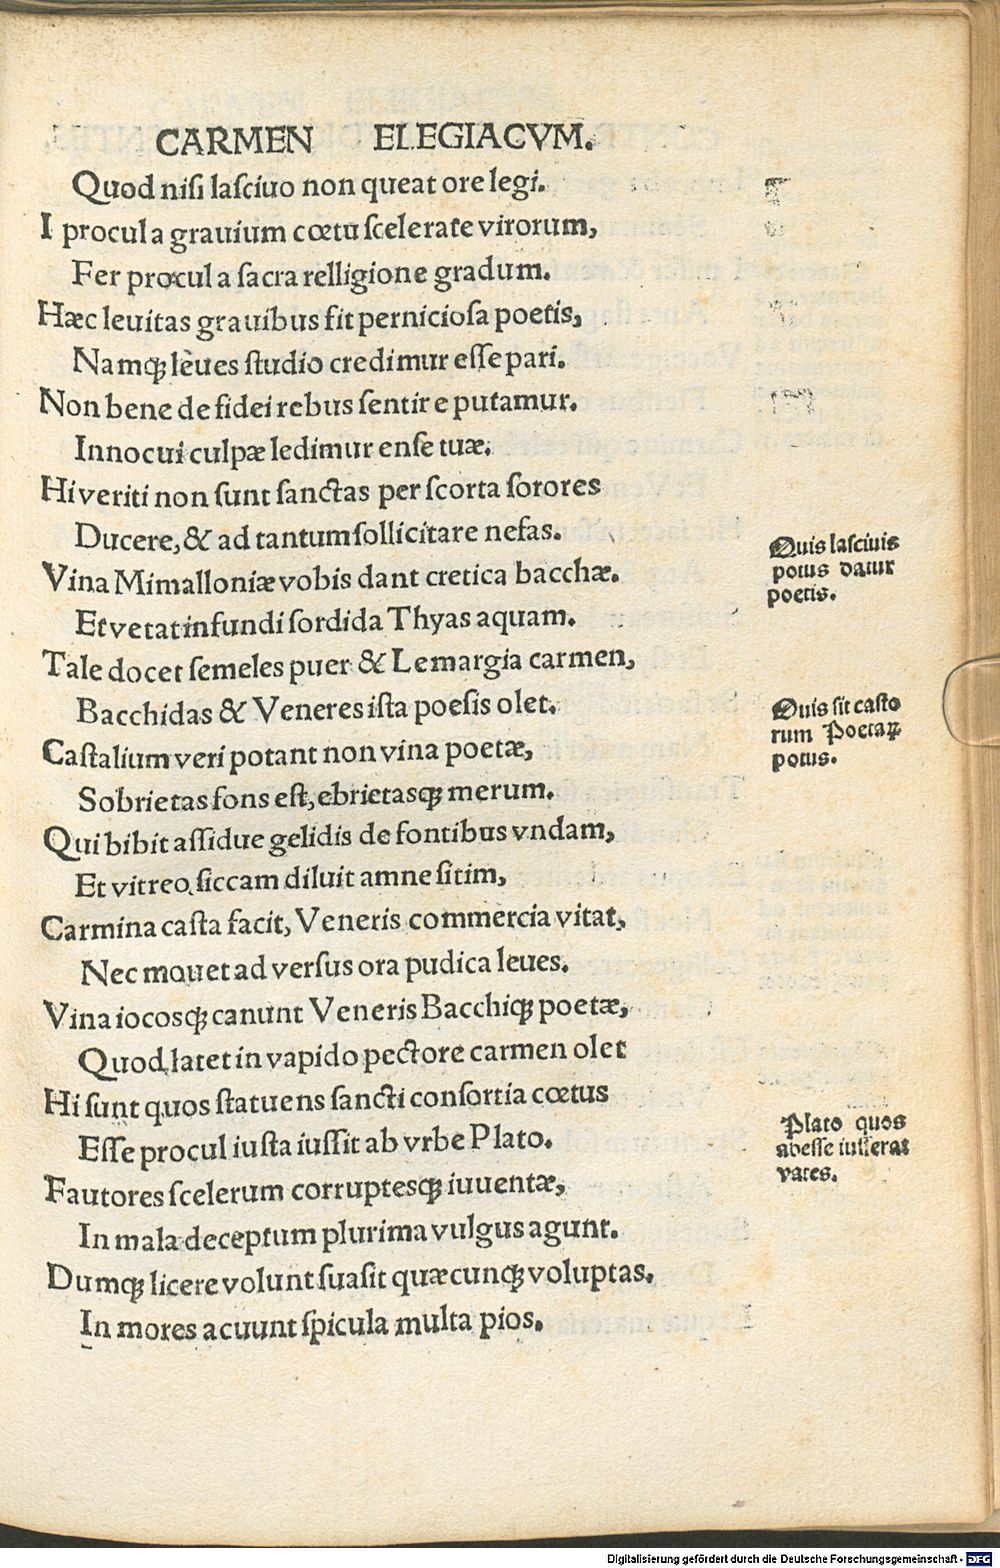 CARMEN ELEGIACVM.
Quod nisi lasciuo non queat ore legi.
I procul a grauium cœtu scelerate virorum,
Fer procul a sacra relligione gradum.
Hæc leuitas grauibus fit perniciosa poetis,
Namqꝫ leues studio credimur esse pari.
Non bene de fidei rebus sentire putamur.
Innocui culpæ ledimur ense tuæ.
Hi veriti non sunt sanctas per scorta sorores
Ducere, & ad tantum sollicitare nefas.
Vina Mimalloniæ vobis dant cretica bacchæ.
Et vetat infundi sordida Thyas aquam.
Quis lasciuis
potus datur
poetis.
Tale docet semeles puer & Lemargia carmen,
Bacchidas & Veneres ista poesis olet.
Castalium veri potant non vina poetæ,
Quis sit casto
rum Poetaꝝ
potus.
Sobrietas fons est, ebrietasqꝫ merum.
Qui bibit assidue gelidis de fontibus vndam,
Et vitreo siccam diluit amne sitim,
Carmina casta facit, Veneris commercia vitat,
Nec mouet ad versus ora pudica leues.
Vina iocosqꝫ canunt Veneris Bacchiqꝫ poetæ,
Quod latet in vapido pectore carmen olet
Hi sunt quos statuens sancti consortia cœtus
Esse procul iusta iussit ab vrbe Plato.
Plato quos
abesse iusserat
vates.
Fautores scelerum corruptesqꝫ iuuentæ,
In mala deceptum plurima vulgus agunt.
Dumqꝫ licere volunt suasit quæcunqꝫ voluptas.
In mores acuunt spicula multa pios.
Digitalisierung gefördert durch die Deutsche Forschungsgemeinschaft - DFG